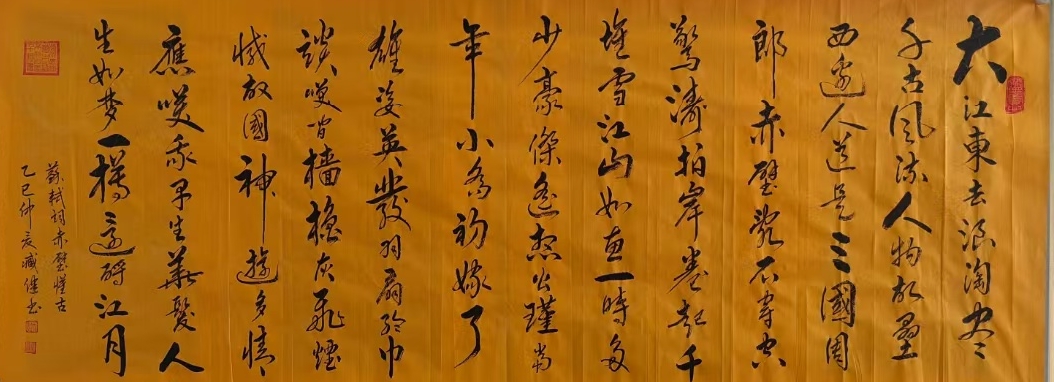 大江東去浪淘尽
千古風流人物故壘
西邊人道是三國周
郎赤壁亂石穿空
驚濤拍岸卷起千
堆雪江山如畫一時多
少豪傑遙想公瑾當
年小喬初嫁了
雄姿英發羽扇綸巾
談咲間檣櫓灰飛煙
滅故國神遊多情
應咲我早生華髮人
生如夢一樽還酹江月
蘇軾詞赤壁懷古
乙巳仲夏臧傑書